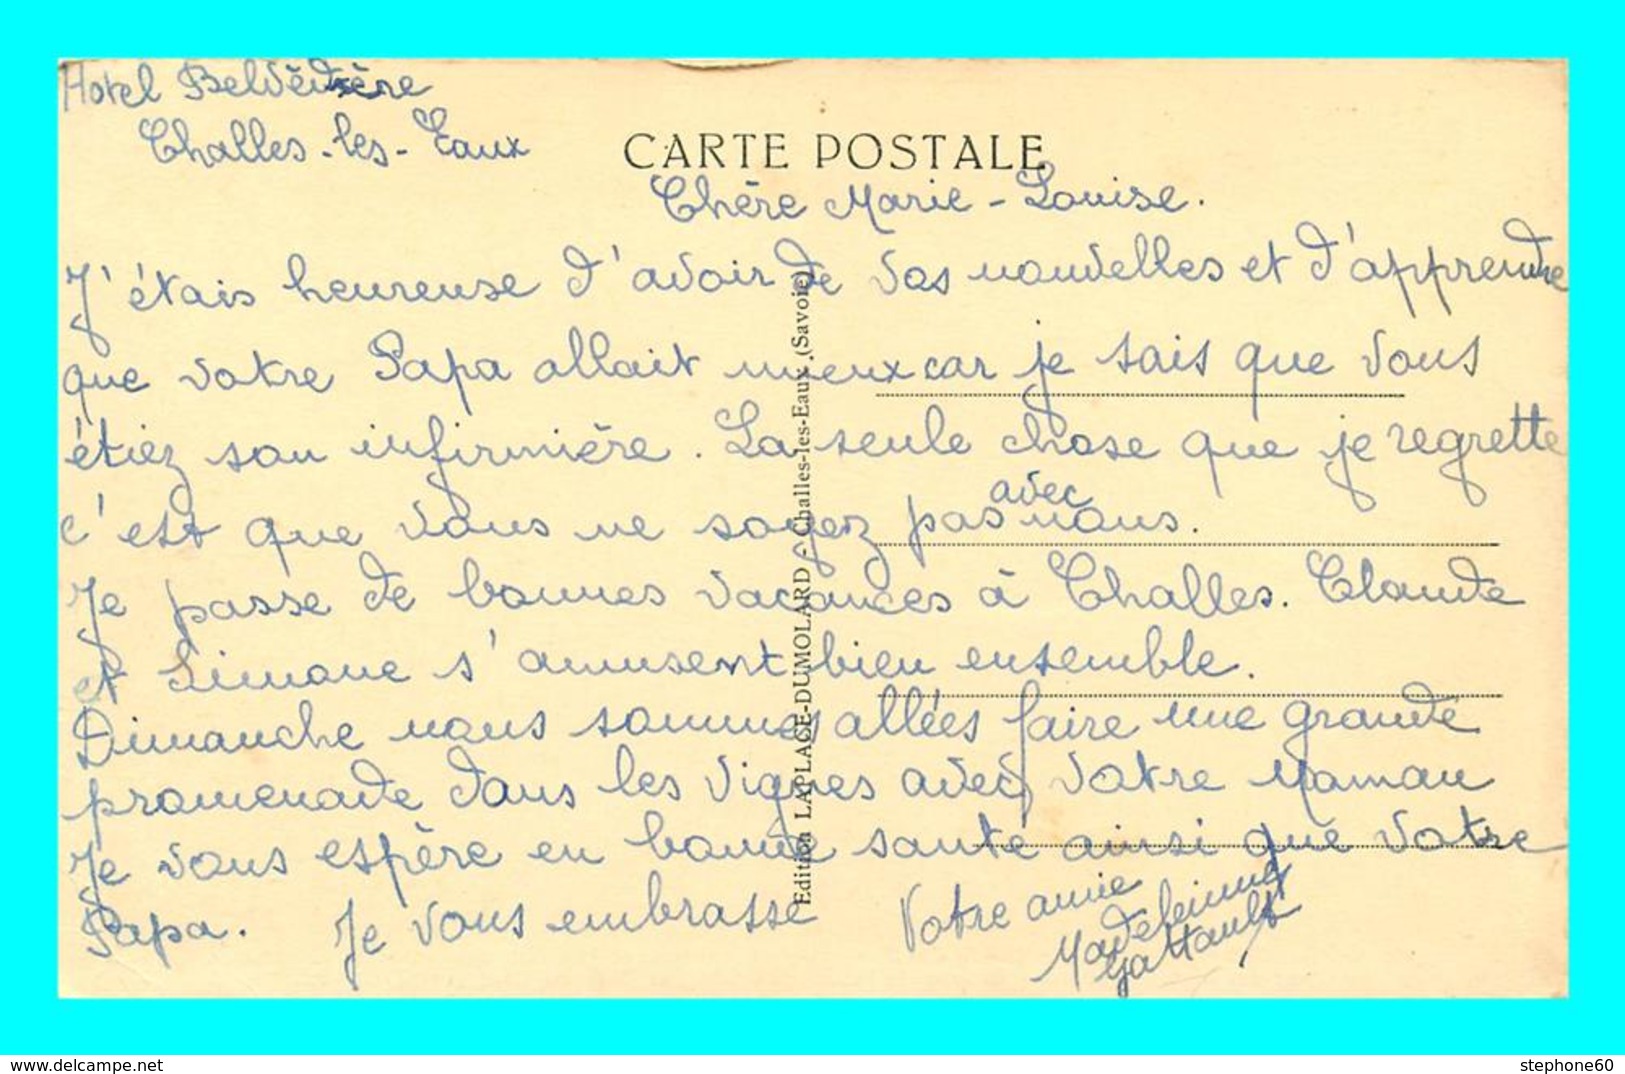 Hotel Belvédère
Challes-les-Eaux
CARTE POSTALE
Chère Marie-Louise.
J'étais heureuse d'avoir de vos nouvelles et d'apprendre
que votre Papa allait mieux car je sais que vous
étiez son infirmière. La seule chose que je regrette
avec
c'est que vous ne soyez pas nous.
Je passe de bonnes vacances à Challes. Claude
et Simone s'amusent bien ensemble.
Dimanche nous sommes allées faire une grande
promenade dans les vignes avec votre Maman
Je vous espère en bonne santé ainsi que votre
Papa. Je vous embrasse
Votre amie
Madeleine
Edition LAPLACE-DUMOLARD - Challes-les-Eaux (Savoie)
delcampe.net
stephone60